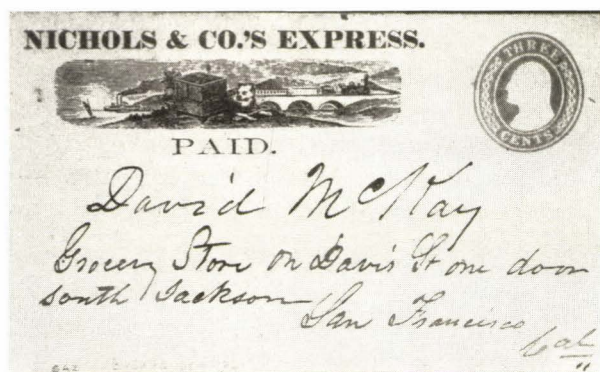 NICHOLS & CO.'S EXPRESS.
THREE
CENTS
PAID.
David McKay
Grocery Store on Davis St one door
south Jackson
San Francisco
Cal